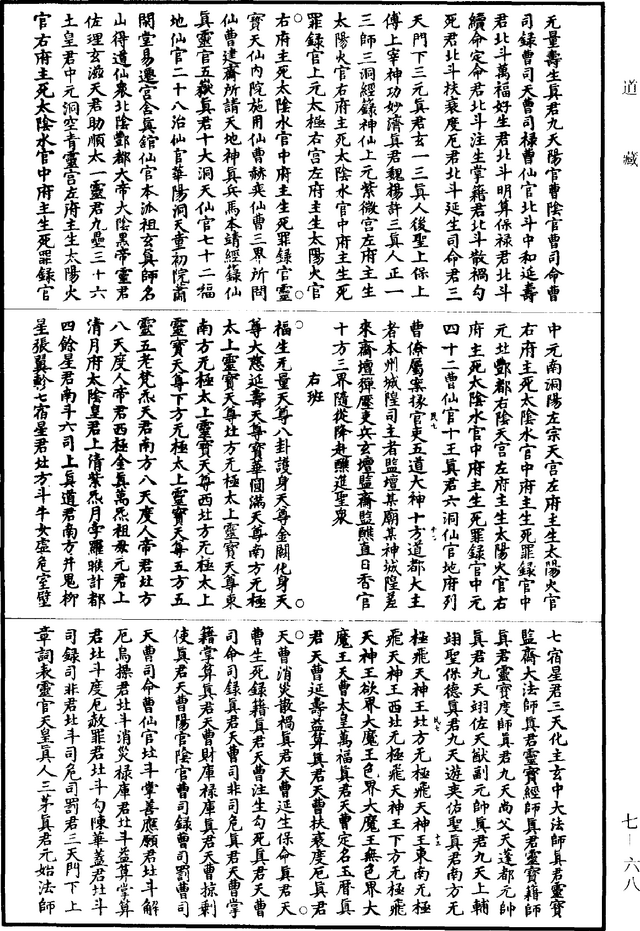 道藏
元量壽生真君九天陽官曹陰官曹司命曹
司錄曹司天曹司祿曹仙官北斗中和延壽
君北斗萬福好生君北斗明算保祿君北斗
續命定命君北斗注生掌籍君北斗散禍勾
死君北斗扶衰度厄君北斗延生司命君三
天門下三元真君玄一三真人後聖上保上
傅上宰神功妙濟真君魏楊許三真人正一
三師三洞經籙神仙上元紫微宮左府主生
太陽火官右府主死太陰水官中府主生死
罪錄官上元太極右宮左府主生太陽火官
右府主死太陰水官中府主生死罪錄官靈
寶天仙內院施用仙曹赫奕仙曹三界所問
仙曹建齋所諸天地神真兵馬本靖經籙仙
真靈官五嶽真君十大洞天仙官七十二福
地仙官二十八治仙官華陽洞天童初院蕭
閑堂易遷宮含真館仙官本派祖玄真師名
山得道仙眾北陰酆都大帝大陰黑帝靈君
佐理玄滋天君助順太一靈君九壘三十六
土皇君中元洞空青靈宮左府主生太陽火
官右府主死太陰水官中府主生死罪錄官
中元南洞陽左宗天宮左府主生太陽火官
右府主死太陰水官中府主生死罪錄官中
元北酆都右陰天宮左府主生太陽火官右
府主死太陰水官中府主生死罪錄官中元
四十二曹仙官十王真君六洞仙官地府列
曹僚屬案掾官吏五道大神十方道都大主
者本州城隍司主者監壇某廟某神城隍差
來齋壇彈壓吏兵玄壇監齋監醮直日香官
十方三界隨從降赴醮筵聖眾
右班
福生无量天尊八卦護身天尊金闕化身天
尊大慈延壽天尊寶華圓滿天尊南方无極
太上靈寶天尊北方无極太上靈寶天尊東
南方无極太上靈寶天尊西北方无極太上
靈寶天尊下方无極太上靈寶天尊五方五
靈五老梵炁天君南方八天度人帝君北方
八天度人帝君西極金真萬炁祖母元君上
清月府太陰皇君上清紫炁月孛羅睺計都
四餘星君南斗六司上真道君南方井鬼柳
星張翼軫七宿星君北方斗牛女虛危室壁
七宿星君三天化主玄中大法師真君靈寶
監齋大法師真君靈寶經師真君靈寶籍師
真君靈寶度師真君九天尚父天蓬都元帥
真君九天翊佐天猷副元帥真君九天上輔
翊聖保德真君九天遊奕佑聖真君南方无
極飛天神王北方无極飛天神王東南无極
飛天神王西北无極飛天神王下方无極飛
天神王欲界大魔王色界大魔王無色界大
魔王天曹太皇萬福真君天曹定名玉曆真
君天曹延壽益算真君天曹扶衰度厄真君
天曹消災散禍真君天曹延生保命真君天
曹生死錄籍真君天曹注生勾死真君天曹
司命司錄真君天曹司非司危真君天曹掌
籍掌算真君天曹財庫祿庫真君天曹掠剩
使真君天曹陽官陰官曹司錄曹司罰曹司
天曹司命曹仙官北斗掌善應願君北斗解
厄烏操君北斗消災祿庫君北斗益算掌算
君北斗度厄赦罪君北斗勾陳華蓋君北斗
司錄司非君北斗司危司罰君三天門下上
章詞表靈官天皇真人三茅真君元始法師
七—六八